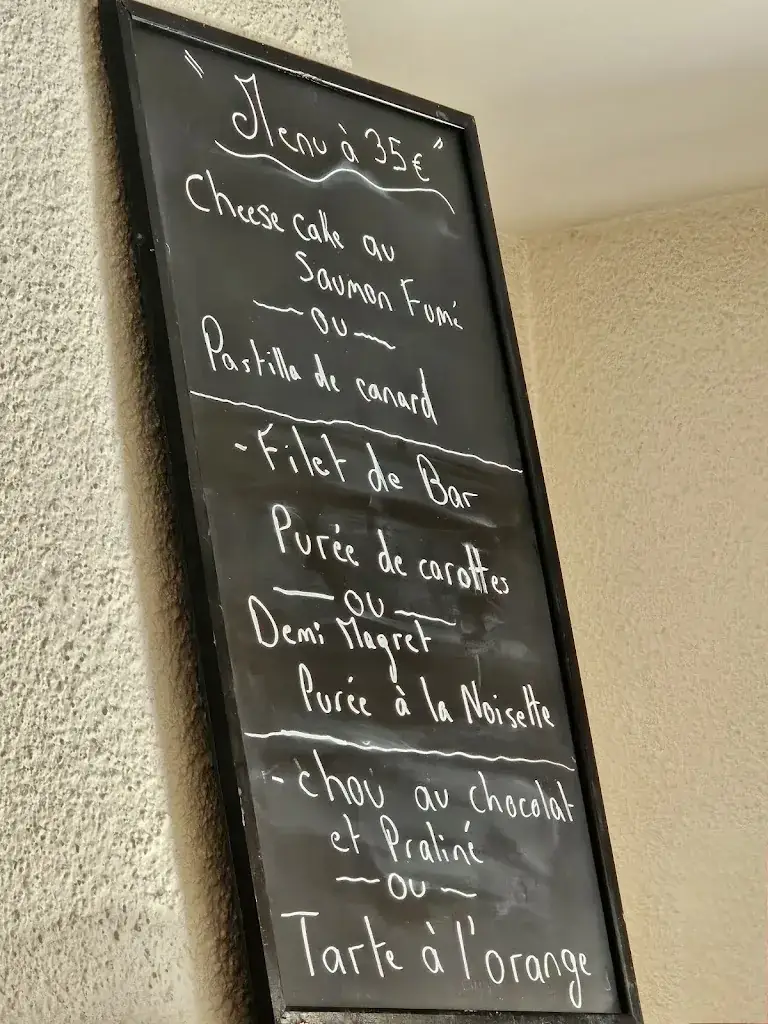 " Menu à 35€ "
Cheese cake au
Saumon Fumé
ou
Pastilla de canard
- Filet de Bar
Purée de carottes
ou
Demi Magret
Purée à la Noisette
- chou au chocolat
et Praliné
ou
Tarte à l'orange